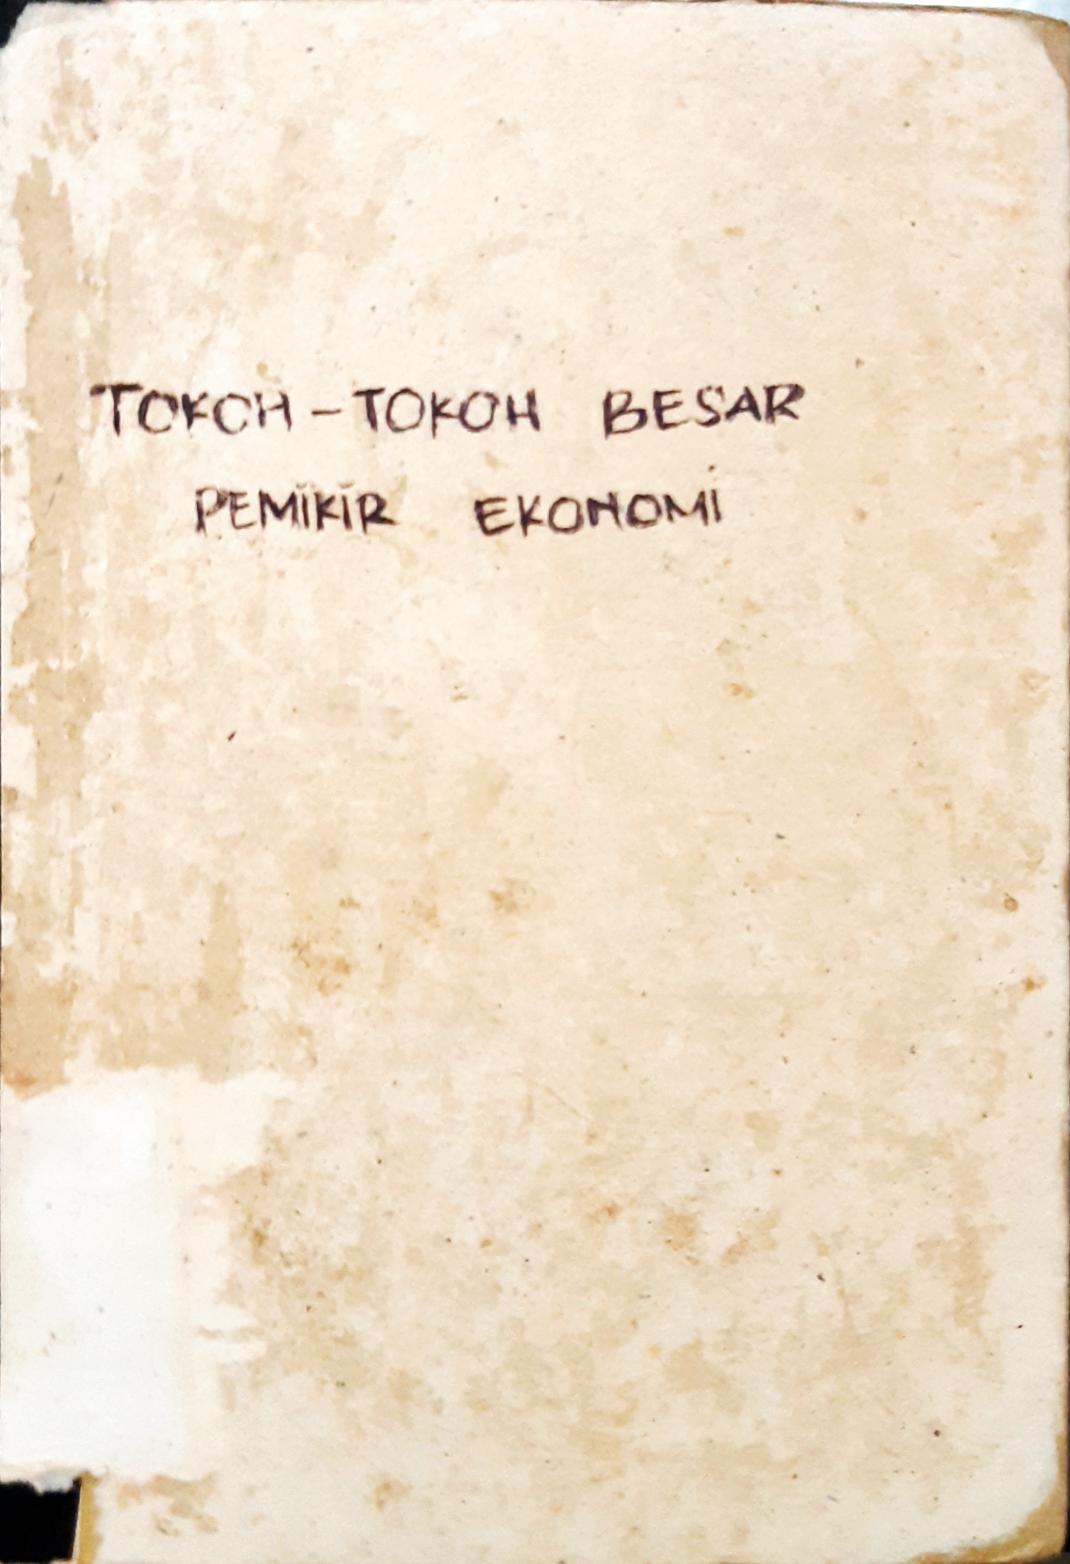 TOKOH-TOKOH BESAR
PEMIKIR EKONOMI